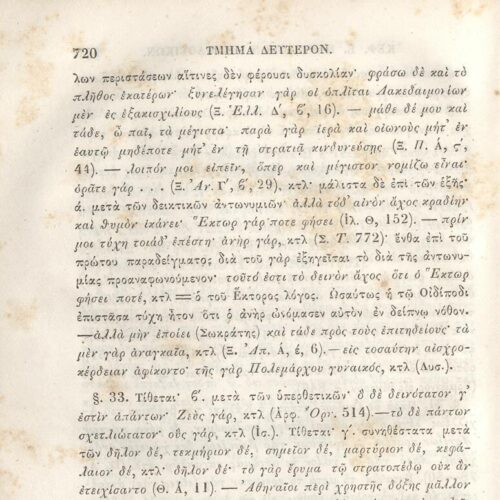 720 ΤΜΗΜΑ ΔΕΥΤΕΡΟΝ.
λων περιστάσεων αἵτινες δὲν φέρουσι δυσκολίαν· φράσω δὲ καὶ τὸ
πλῆθος ἑκατέρων· ξυνελέγησαν γὰρ οἱ ὁπλῖται Λακεδαιμονίων
μὲν ἐς ἑξακισχιλίους (Ξ. Ἑλλ. Δ΄, ϐ΄, 16). — μάθε δέ μου καὶ
τάδε, ὦ παῖ, τὰ μέγιστα· παρὰ γὰρ ἱερὰ καὶ οἰωνοὺς μήτ' ἐν
ἑαυτῷ μηδέποτε μήτ' ἐν τῇ στρατιᾷ κινδυνεύσῃς (Ξ. Π. Α΄, ς΄,
44). — λοιπόν μοι εἰπεῖν, ὅπερ καὶ μέγιστον νομίζω εἶναι·
ὁρᾶτε γὰρ . . . (Ξ. Ἀν. Γ΄, ϐ΄, 29), κτλ· μάλιστα δὲ ἐπὶ τῶν ἑξῆς·
ά. μετὰ τῶν δεικτικῶν ἀντωνυμιῶν· ἀλλὰ τόδ' αἰνὸν ἄχος κραδίην
καὶ θυμὸν ἱκάνει· Ἕκτωρ γάρ ποτε φήσει (Ἰλ. Θ, 152). — πρίν
μοι τύχη τοιάδ' ἐπέστη· ἀνὴρ γάρ, κτλ (Σ. Τ. 772)· ἔνθα ἐπὶ τοῦ
πρώτου παραδείγματος διὰ τοῦ γὰρ ἐξηγεῖται τὸ διὰ τῆς ἀντωνυ-
μίας προαναφωνούμενον· τοῦτό ἐστι τὸ δεινὸν ἄχος ὅτι ὁ Ἕκτωρ
φήσει ποτέ, κτλ = ὁ τοῦ Ἕκτορος λόγος. Ὡσαύτως ἡ τῷ Οἰδίποδι
ἐπιστᾶσα τύχη ἦτον ὅτι ὁ ἀνὴρ ὠνόμασεν αὐτὸν ἐν δείπνῳ νόθον.
—ἀλλὰ μὴν ἐποίει (Σωκράτης) καὶ τάδε πρὸς τοὺς ἐπιτηδείους· τὰ
μὲν γὰρ ἀναγκαῖα, κτλ (Ξ. Ἀπ. Α΄, έ, 6). — εἰς τοσαύτην αἰσχρο-
κέρδειαν ἀφίκοντο· τῆς γὰρ Πολεμάρχου γυναικός, κτλ (Λυσ.).
§. 33. Τίθεται· ϐ΄. μετὰ τῶν ὑπερθετικῶν· ὃ δὲ δεινότατον γ'
ἐστὶν ἁπάντων· Ζεὺς γάρ, κτλ (Ἀρφ. Ὀρν. 514).—τὸ δὲ πάντων
σχετλιώτατον· οὓς γάρ, κτλ (Ἰς.). Τίθεται· γ΄. συνηθέστατα μετὰ
τῶν δῆλον δέ, τεκμήριον δέ, σημεῖον δέ, μαρτύριον δέ, κεφά-
λαιον δέ, κτλ· δῆλον δέ· τὸ γὰρ ἔρυμα τῷ στρατοπέδῳ οὐκ ἂν
ἐτειχίσαντο (Θ. Α΄, 11). — Ἀθηναῖοι περὶ χρηστῆς δόξης μᾶλλον